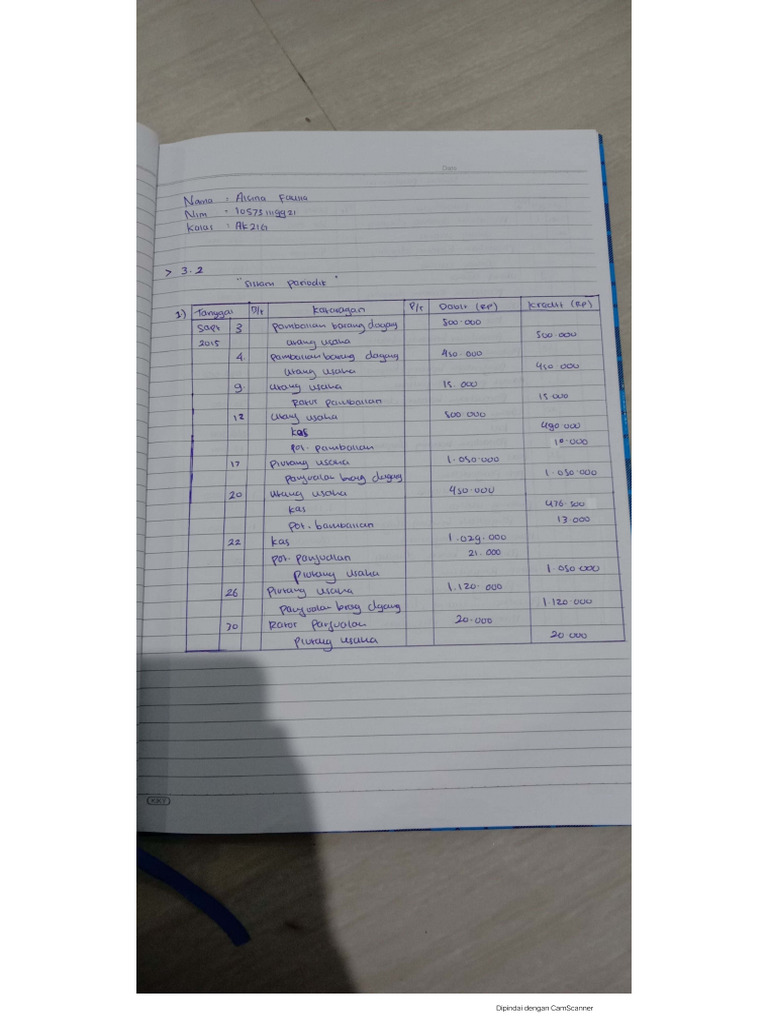 Date
Nama : Alsina Fauzia
Nim : 105731119921
Kelas : AK21G
> 3.2
"Sistem Periodik"
1) Tanggal D/t Keterangan P/r Debit (RP) Kredit (RP)
Sept 3 Pembelian barang dagang 500.000
2015 Utang usaha 500.000
4. Pembelian barang dagang 450.000
Utang usaha 450.000
9. Utang usaha 15.000
Retur pembelian 15.000
12 Utang usaha 500.000
kas 490.000
pot. pembelian 10.000
17 Piutang usaha 1.050.000
penjualan brang dagang 1.050.000
20 Utang usaha 450.000
kas 436.500
pot. pembelian 13.000
22 kas 1.029.000
pot. penjualan 21.000
piutang usaha 1.050.000
26 Piutang usaha 1.120.000
penjualan brang dagang 1.120.000
30 Retur penjualan 20.000
piutang usaha 20.000
KKY
Dipindai dengan CamScanner